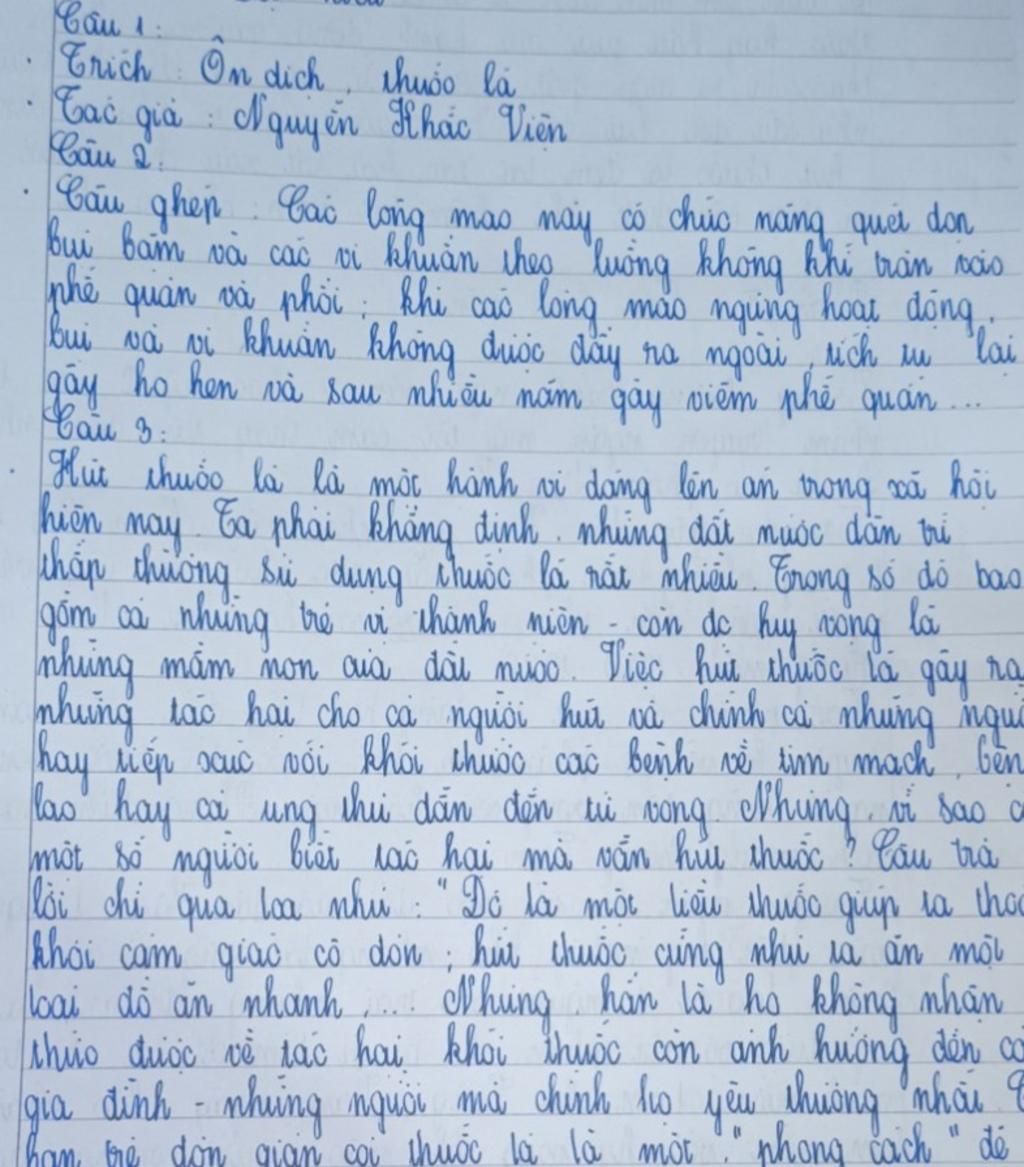 Câu 1:
Trích: Ôn dịch, thuốc lá
Tác giả: Nguyễn Khắc Viện
Câu 2:
Câu ghép: Các lông mao này có chức năng quét dọn
bụi bặm và các vi khuẩn theo luồng không khí tràn vào
phế quản và phổi; khi các lông mao ngừng hoạt động,
bụi và vi khuẩn không được đẩy ra ngoài, tích tụ lại
gây ho hen và sau nhiều năm gây viêm phế quản...
Câu 3:
Hút thuốc lá là một hành vi đáng lên án trong xã hội
hiện nay. Ta phải khẳng định, những đất nước dân trí
thấp thường sử dụng thuốc lá rất nhiều. Trong số đó bao
gồm cả những trẻ vị thành niên - còn đc hy vọng là
những mầm non của đất nước. Việc hút thuốc lá gây ra
những tác hại cho cả người hút và chính cả những ngườ
hay tiếp xúc với khói thuốc các bệnh về tim mạch, bện
lao hay cả ung thư dẫn đến tử vong. Nhưng vì sao c
một số người biết tác hại mà vẫn hút thuốc? Câu trả
lời chỉ qua loa như: "Đó là một liều thuốc giúp ta thoá
khỏi cảm giác cô đơn, hút thuốc cũng như ta ăn một
loại đồ ăn nhanh... Nhưng hẳn là họ không nhận
thức được về tác hại khói thuốc còn ảnh hưởng đến cả
gia đình - những người mà chính họ yêu thương nhất.
bạn trẻ đơn giản coi thuốc lá là một "phong cách" để